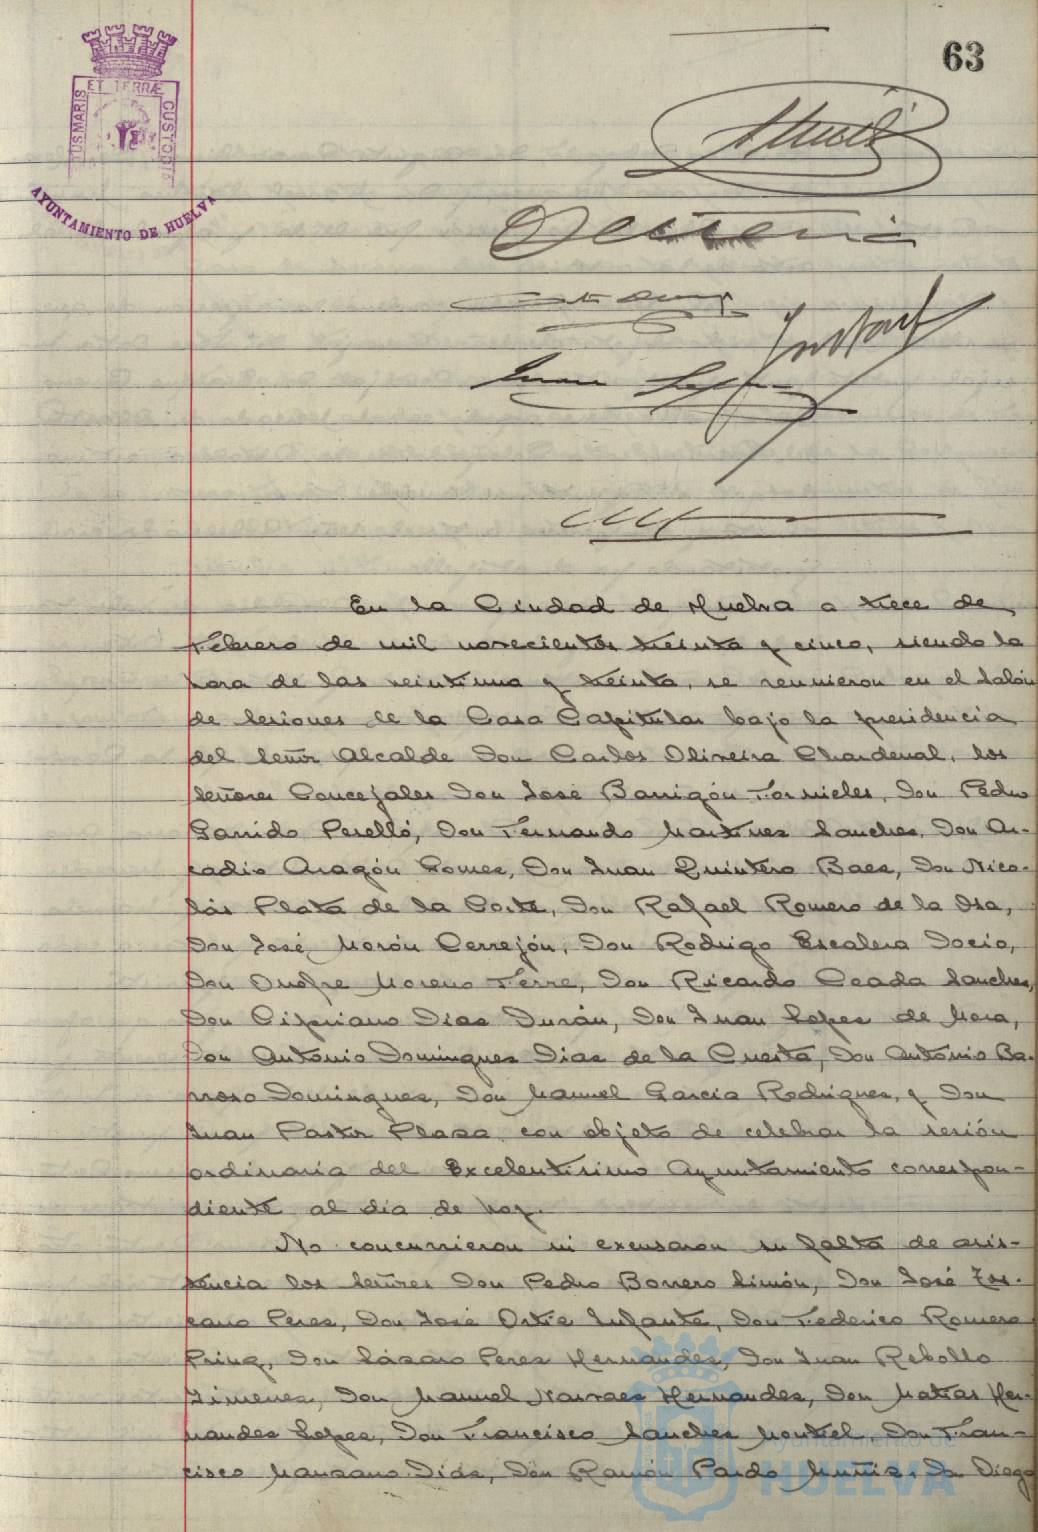 63
ET TERRÆ
CUSTODIA
AYUNTAMIENTO DE HUELVA
En la Ciudad de Huelva a trece de
Febrero de mil novecientos treinta y cinco, siendo la
hora de las veintiuna y treinta, se reunieron en el Salón
de Sesiones de la Casa Capitular bajo la presidencia
del Señor Alcalde Don Carlos Oliveira Chardenal, los
Señores Concejales Don José Barrigón Fornieles, Don Pedro
Garrido Perelló, Don Fernando Martinez Sanchez, Don Ar-
cadio Aragón Gomez, Don Juan Quintero Baez, Don Nico-
lás Plata de la Corte, Don Rafael Romero de la Osa,
Don José Morón Cerrejón, Don Rodrigo Escalera Docio,
Don Onofre Moreno Terre, Don Ricardo Ceada Sanchez,
Don Cipriano Diaz Durán, Don Juan Lopez de Mera,
Don Antonio Dominguez Diaz de la Cuesta, Don Antonio Ba-
rroso Dominguez, Don Manuel Garcia Rodriguez, y Don
Juan Pastor Plaza con objeto de celebrar la sesión
ordinaria del Excelentísimo Ayuntamiento correspon-
diente al día de hoy.
No concurrieron ni excusaron su falta de asis-
tencia los Señores Don Pedro Borrero Limón, Don José Tos-
cano Perez, Don José Ortiz Infante, Don Federico Romero
Don Lázaro Perez Hernandez, Don Juan Rebollo
Jimenez, Don Manuel Narvaez Hernandez, Don Matias Her-
nandez Lopez, Don Francisco Sanchez Montiel, Don Fran-
cisco Manzano Diaz, Don Ramón Pardo Muñiz, Don Diego
Ayuntamiento de
HUELVA